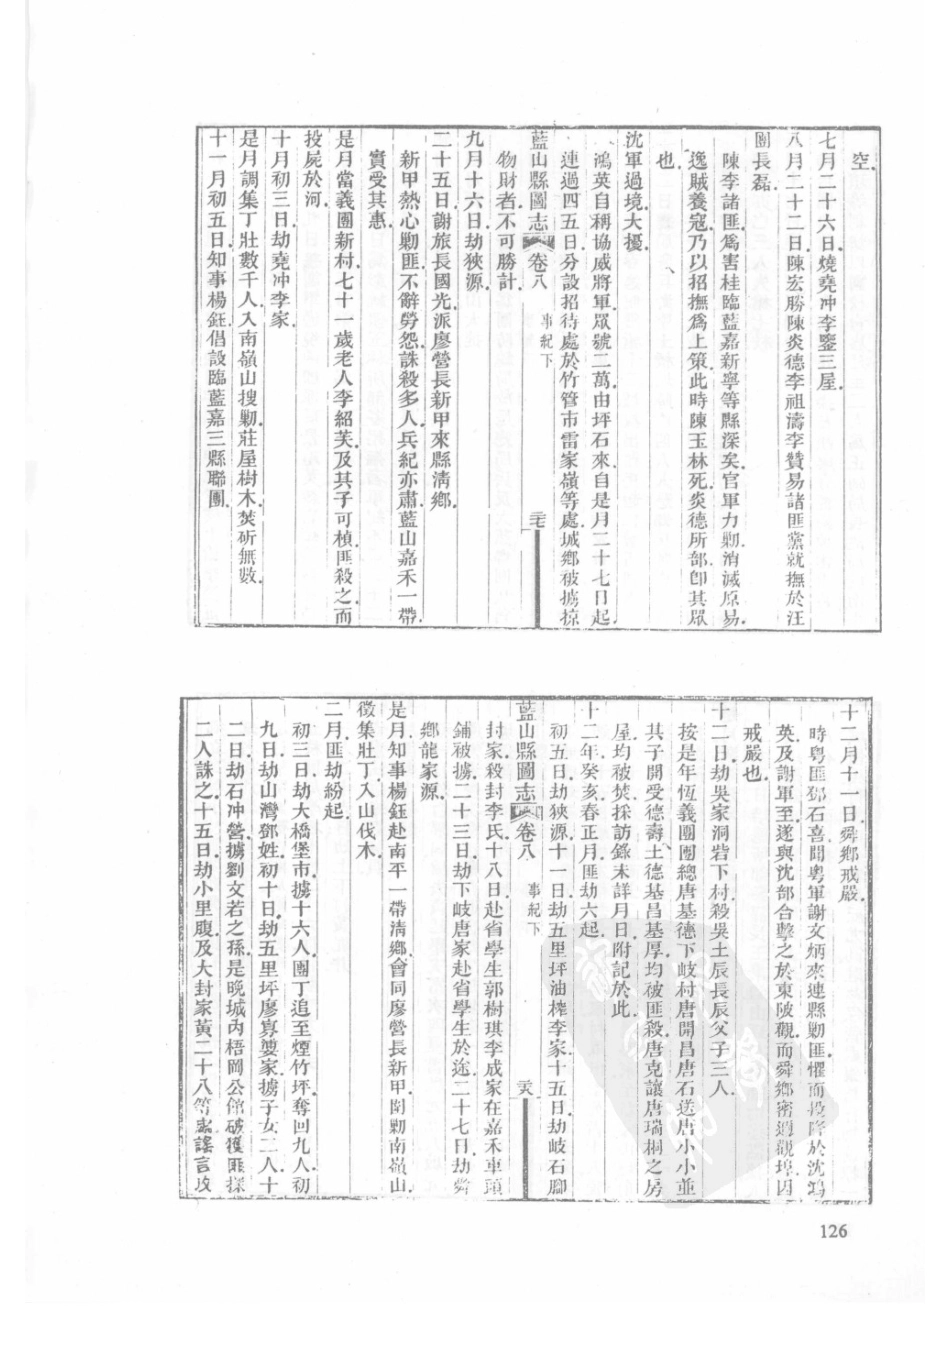 空
七月二十六日燒堯冲李鑒三屋
八月二十二日陳宏勝陳炎德李祖濤李贊易諸匪黨就撫於汪
團長磊
陳李諸匪爲害桂臨藍嘉新寧等縣深矣官軍力勦消滅原易
逸賊養寇乃以招撫爲上策此時陳玉林死炎德所部卽其眾
也
沈軍過境大擾
鴻英自稱協威將軍眾號二萬由坪石來自是月二十七日起
連過四五日分設招待處於竹管市雷家嶺等處城鄉被擄掠
藍山縣圖志 卷八 事紀下 三七
物財者不可勝計
九月十六日劫狹源
二十五日謝旅長國光派廖營長新甲來縣淸鄉
新甲熱心勦匪不辭勞怨誅殺多人兵紀亦肅藍山嘉禾一帶
實受其惠
是月當義團新村七十一歲老人李紹芙及其子可楨匪殺之而
投屍於河
十月初三日劫堯冲李家
是月調集丁壯數千人入南嶺山搜勦莊屋樹木焚斫無數
十一月初五日知事楊鈺倡設臨藍嘉三縣聯團
十二月十一日舜鄉戒嚴
時粤匪鄧石喜聞粤軍謝文炳來連縣勦匪懼而投降於沈鴻
英及謝軍至遂與沈部合擊之於東陂觀而舜鄉密邇觀埠因
戒嚴也
十二日劫吳家洞砦下村殺吳土辰長辰父子三人
按是年恆義團團總唐基德下岐村唐開昌唐石送唐小小並
其子開受德壽土德基昌基厚均被匪殺唐克讓唐瑞桐之房
屋均被焚採訪錄未詳月日附記於此
十二年癸亥春正月匪劫六起
初五日劫狹源十一日劫五里坪油榨李家十五日劫岐石腳
藍山縣圖志 卷八 事紀下 三八
封家殺封李氏十八日赴省學生郭樹琪李成家在嘉禾車頭
鋪被擄二十三日劫下岐唐家赴省學生於途二十七日劫舜
鄉龍家源
是月知事楊鈺赴南平一帶淸鄉會同廖營長新甲圍勦南嶺山
徵集壯丁入山伐木
二月匪劫紛起
初三日劫大橋堡市擄十六人團丁追至煙竹坪奪回九人初
九日劫山灣鄧姓初十日劫五里坪廖寡婆家擄子女二人十
二日劫石冲營擄劉文若之孫是晚城內梧岡公館破獲匪探
二人誅之十五日劫小里腹及大封家黃二十八等家謠言攻
126